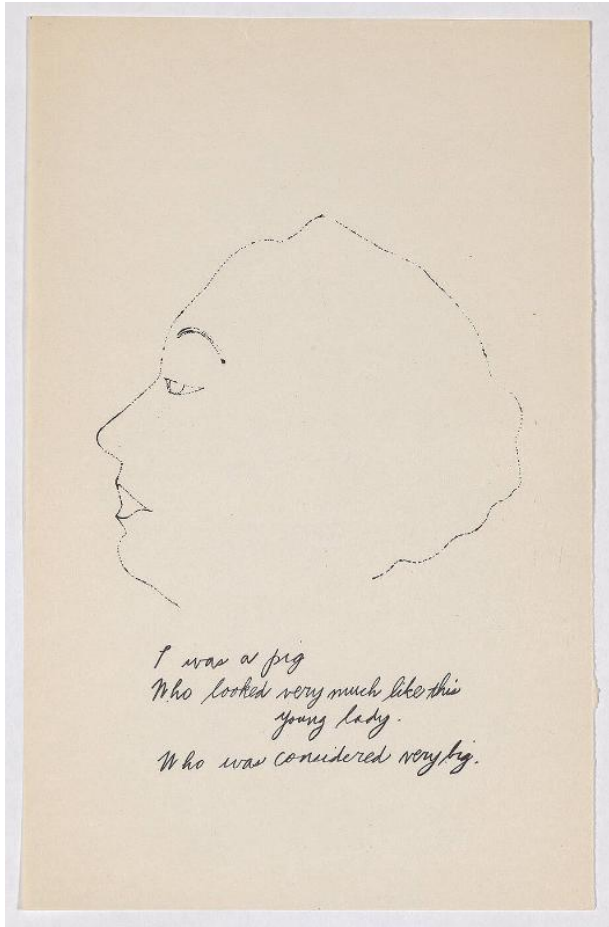 I was a pig
Who looked very much like this
young lady.
Who was considered very big.